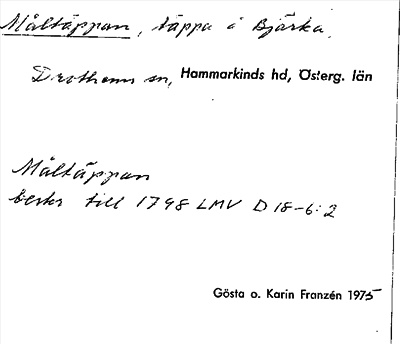 Måltäppan, täppa i Bjärka,
Drothems sn, Hammarkinds hd, Österg. län
Måltäppan
beskr till 1798 LMV D 18-6:2
Gösta o. Karin Franzén 1975